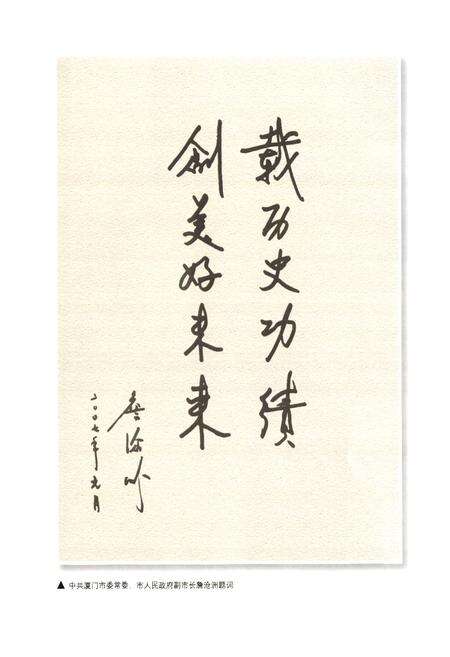 载历史功绩
创美好未来
詹沧洲
二〇〇七年元月
▲ 中共厦门市委常委、市人民政府副市长詹沧洲题词